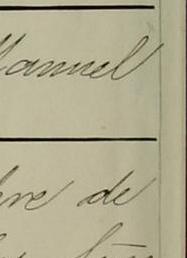 Manuel
bre de